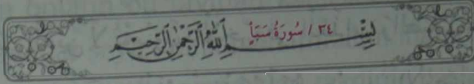 ٣٤ / سُورَةُ سَبَأ
بِسْمِ اللَّهِ الرَّحْمَٰنِ الرَّحِيمِ